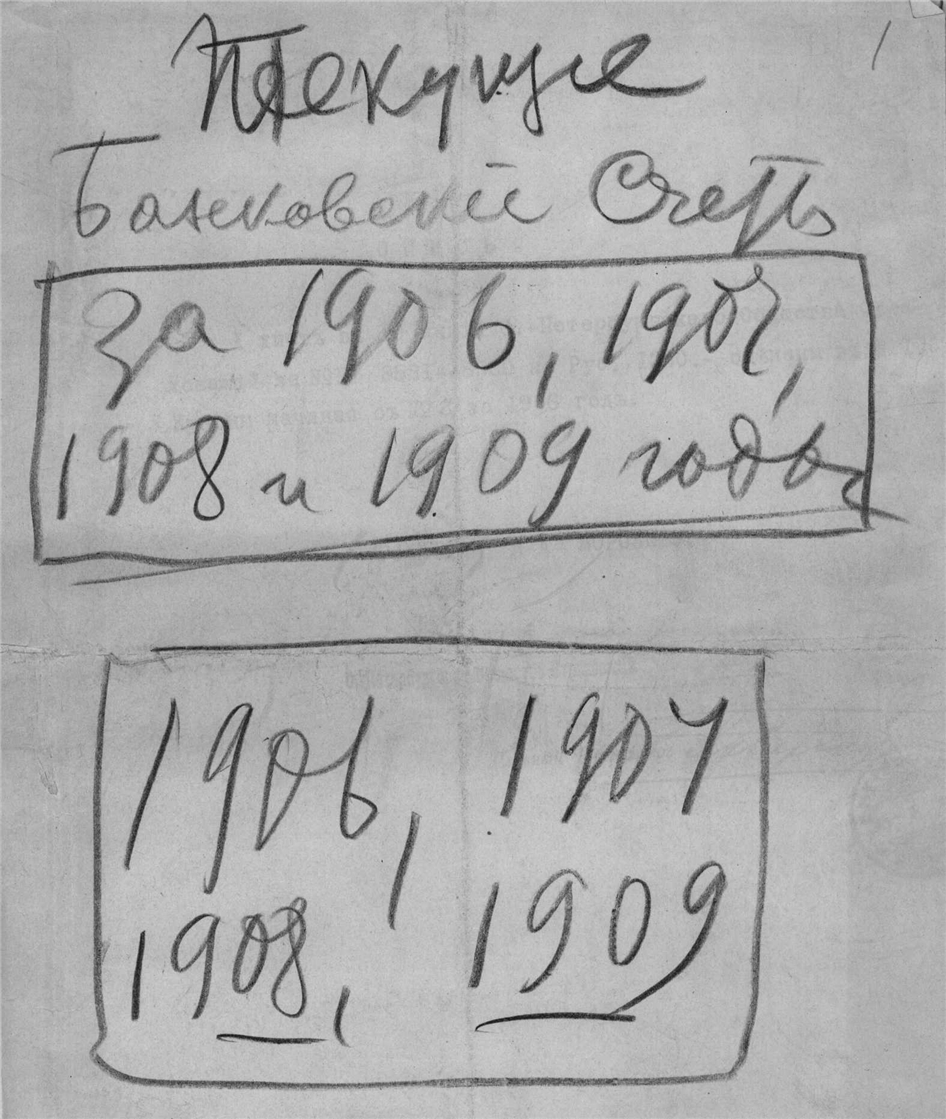 Текущие
Банковскiй Счетъ
За 1906, 1907,
1908 и 1909 годы
1906, 1907
1908, 1909